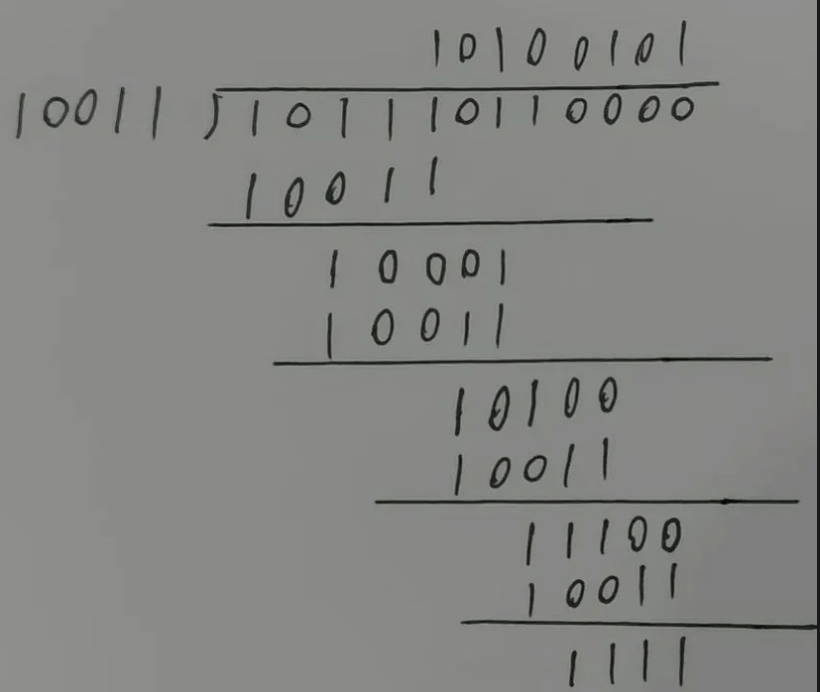 10100101
10011)101110110000
10011
10001
10011
10100
10011
11100
10011
1111